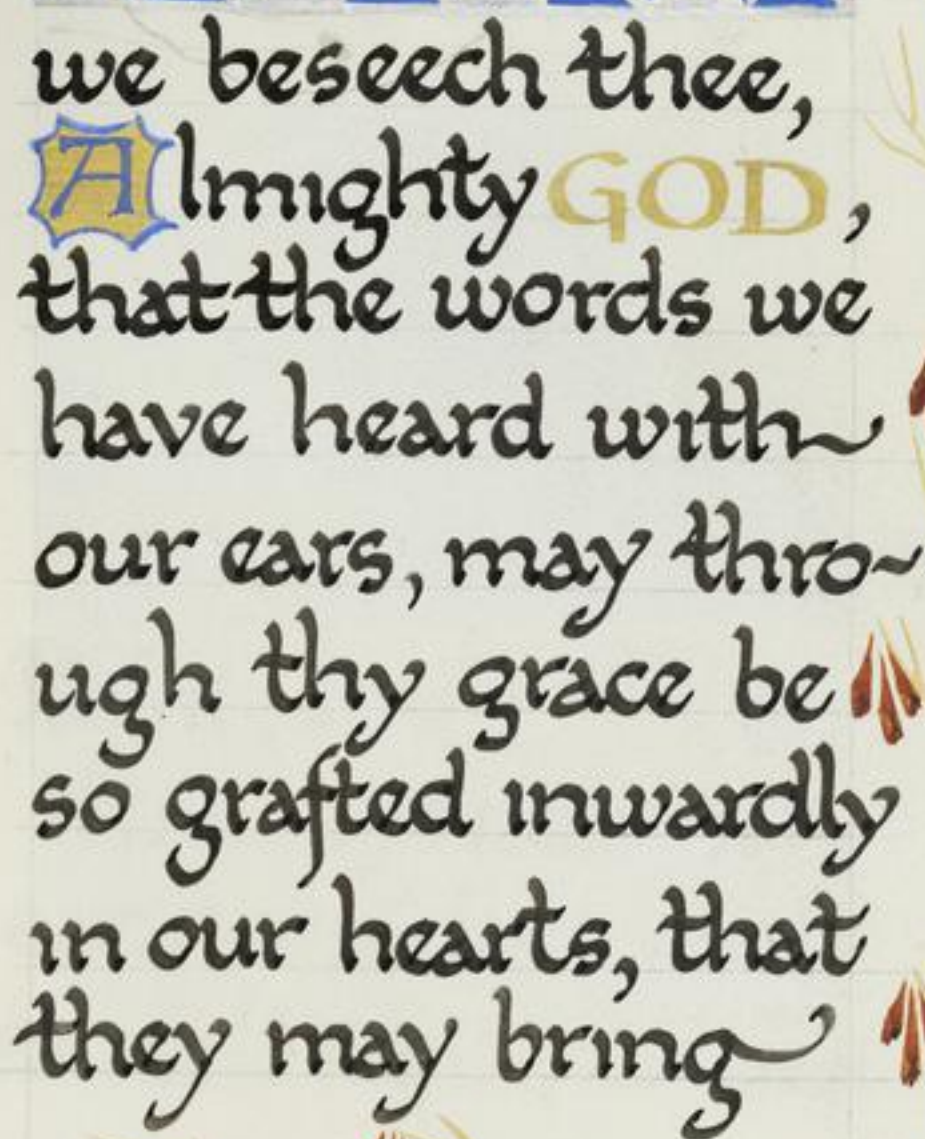 we beseech thee,
Almighty GOD,
that the words we
have heard with
our ears, may thro~
ugh thy grace be
so grafted inwardly
in our hearts, that
they may bring